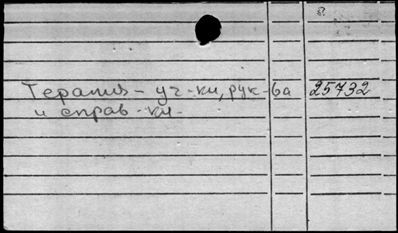 Терапия - уч-ки, рук-ва 25732
и справ-ки.